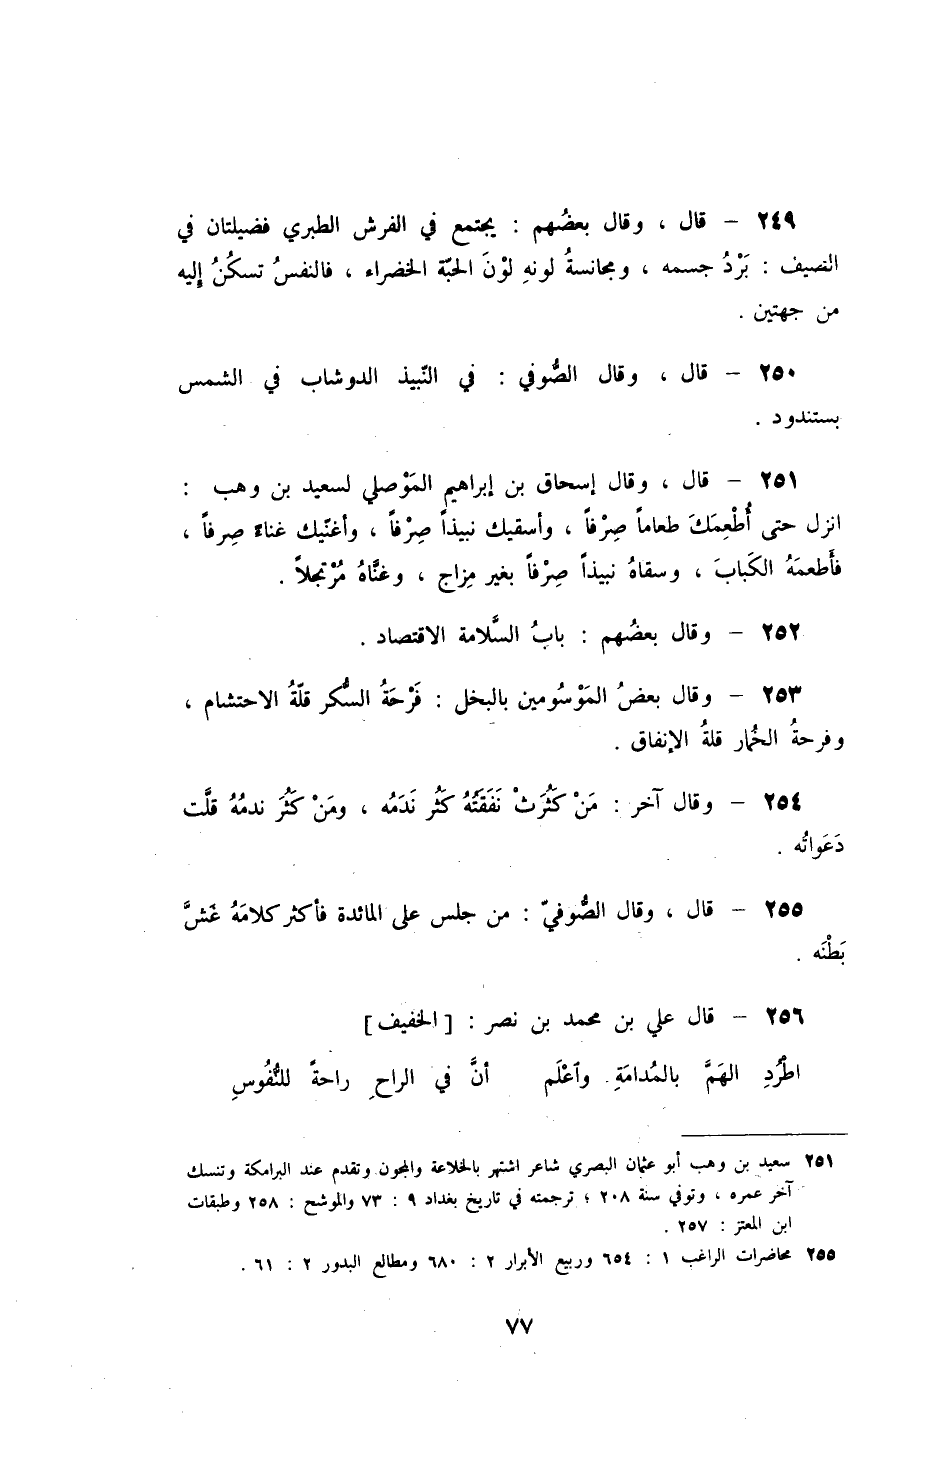 ٢٤٩ – قال ، وقال بعضُهم : يجتمع في الفرش الطبري فضيلتان في
الصيف : بَرْدُ جسمه ، ومجانسةُ لونهِ لوْنَ الحبّة الخضراء ، فالنفسُ تسكُنُ إليه
من جهتين .
٢٥٠ – قال ، وقال الصُّوفي : في النّبيذ الدوشاب في الشمس
بستندود .
٢٥١ – قال ، وقال إسحاق بن إبراهيم المَوْصلي لسعيد بن وهب :
انزل حتى أُطْعِمَكَ طعاماً صِرْفاً ، وأسقيك نبيذاً صِرْفاً ، وأغنّيك غناءً صِرفاً ،
فأَطعمَهُ الكَبابَ ، وسقاهُ نبيذاً صِرْفاً بغير مِزاج ، وغنَّاهُ مُرْتجلاً .
٢٥٢ – وقال بعضُهم : بابُ السَّلامة الاقتصاد .
٢٥٣ – وقال بعضُ المَوْسُومين بالبخل : فَرْحَةُ السُّكر قلّةُ الاحتشام ،
وفرحةُ الخُمار قلةُ الإنفاق .
٢٥٤ – وقال آخر : مَنْ كَثُرَتْ نَفَقَتُهُ كَثُر نَدَمُه ، ومَنْ كَثُرَ ندمُهُ قلَّت
دَعَواتُه .
٢٥٥ – قال ، وقال الصُّوفيّ : من جلس على المائدة فأكثر كلامَهُ غَشَّ
بَطْنَه .
٢٥٦ – قال علي بن محمد بن نصر : [ الخفيف ]
اطْرُدِ الهَمَّ بالمُدامَةِ وٱعْلَم أنَّ في الراحِ راحةً للنُّفُوسِ
٢٥١ سعيد بن وهب أبو عثمان البصري شاعر اشتهر بالخلاعة والمجون وتقدم عند البرامكة وتنسك
آخر عمره ، وتوفي سنة ٢٠٨ ؛ ترجمته في تاريخ بغداد ٩ : ٧٣ والموشح : ٢٥٨ وطبقات
ابن المعتز : ٢٥٧ .
٢٥٥ محاضرات الراغب ١ : ٦٥٤ وربيع الأبرار ٢ : ٦٨٠ ومطالع البدور ٢ : ٦١ .
٧٧